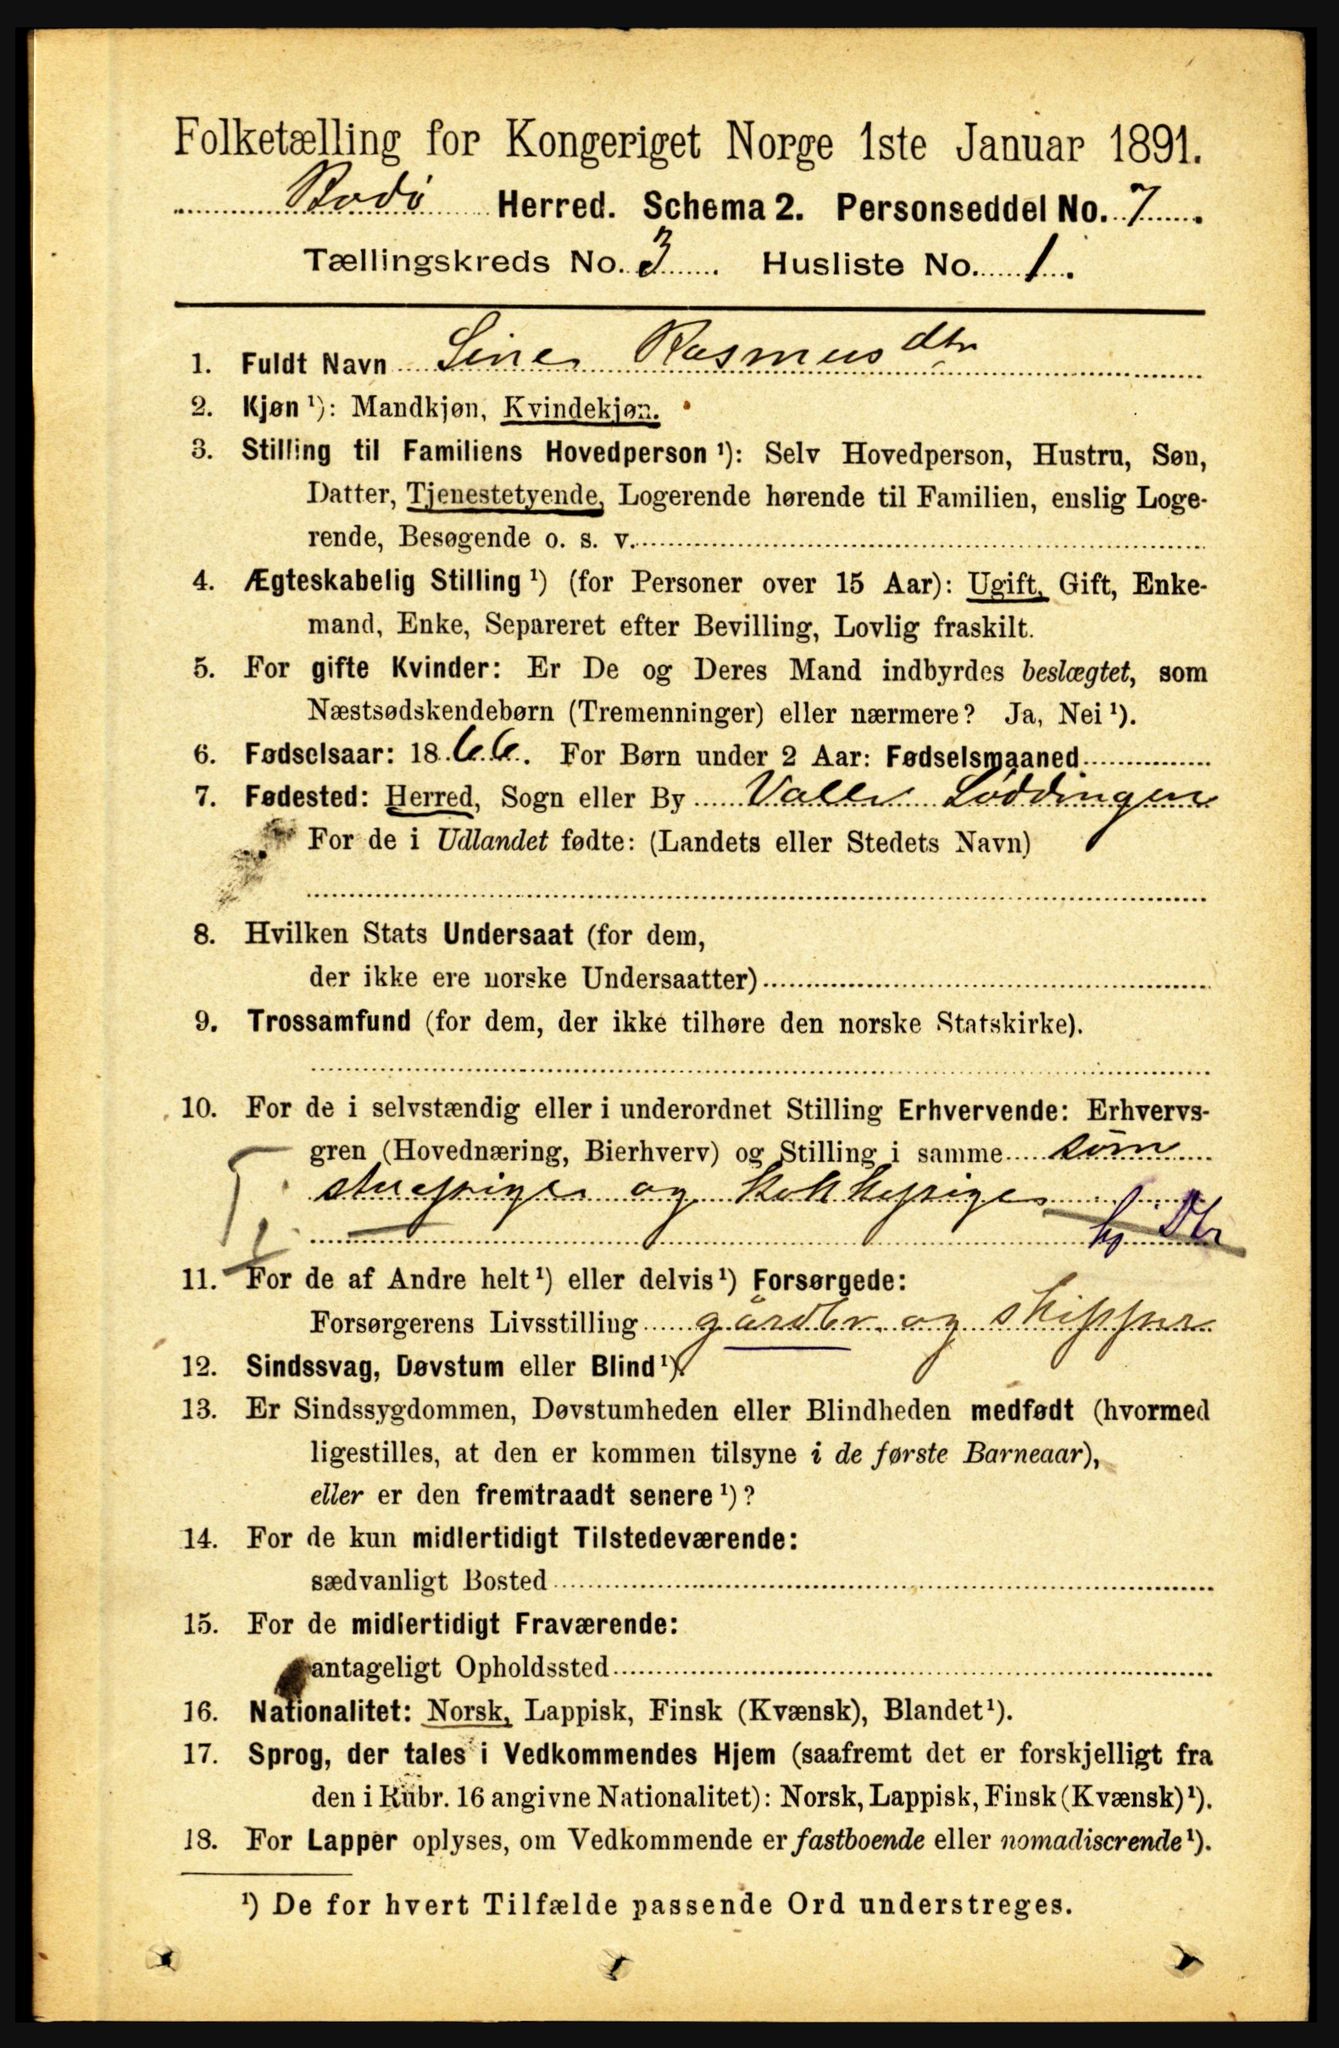 Folketælling for Kongeriget Norge 1ste Januar 1891.
Bodø Herred. Schema 2. Personseddel No. 7.
Tællingskreds No. 3. Husliste No. 1.
1. Fuldt Navn Sine Rasmusdtr
2. Kjøn ¹): Mandkjøn, Kvindekjøn.
3. Stilling til Familiens Hovedperson ¹): Selv Hovedperson, Hustru, Søn,
Datter, Tjenestetyende, Logerende hørende til Familien, enslig Loge-
rende, Besøgende o. s. v.
4. Ægteskabelig Stilling ¹) (for Personer over 15 Aar): Ugift, Gift, Enke-
mand, Enke, Separeret efter Bevilling, Lovlig fraskilt.
5. For gifte Kvinder: Er De og Deres Mand indbyrdes beslægtet, som
Næstsødskendebørn (Tremenninger) eller nærmere? Ja, Nei ¹).
6. Fødselsaar: 1866. For Børn under 2 Aar: Fødselsmaaned
7. Fødested: Herred, Sogn eller By Valle Løddingen
For de i Udlandet fødte: (Landets eller Stedets Navn)
8. Hvilken Stats Undersaat (for dem,
der ikke ere norske Undersaatter)
9. Trossamfund (for dem, der ikke tilhøre den norske Statskirke).
10. For de i selvstændig eller i underordnet Stilling Erhvervende: Erhvervs-
gren (Hovednæring, Bierhverv) og Stilling i samme som
stuepige og kokkepige
11. For de af Andre helt ¹) eller delvis ¹) Forsørgede:
Forsørgerens Livsstilling gårdbr. og skipper
12. Sindssvag, Døvstum eller Blind ¹).
13. Er Sindssygdommen, Døvstumheden eller Blindheden medfødt (hvormed
ligestilles, at den er kommen tilsyne i de første Barneaar),
eller er den fremtraadt senere ¹)?
14. For de kun midlertidigt Tilstedeværende:
sædvanligt Bosted
15. For de midlertidigt Fraværende:
antageligt Opholdssted
16. Nationalitet: Norsk, Lappisk, Finsk (Kvænsk), Blandet ¹).
17. Sprog, der tales i Vedkommendes Hjem (saafremt det er forskjelligt fra
den i Rubr. 16 angivne Nationalitet): Norsk, Lappisk, Finsk (Kvænsk) ¹).
18. For Lapper oplyses, om Vedkommende er fastboende eller nomadiserende ¹).
¹) De for hvert Tilfælde passende Ord understreges.